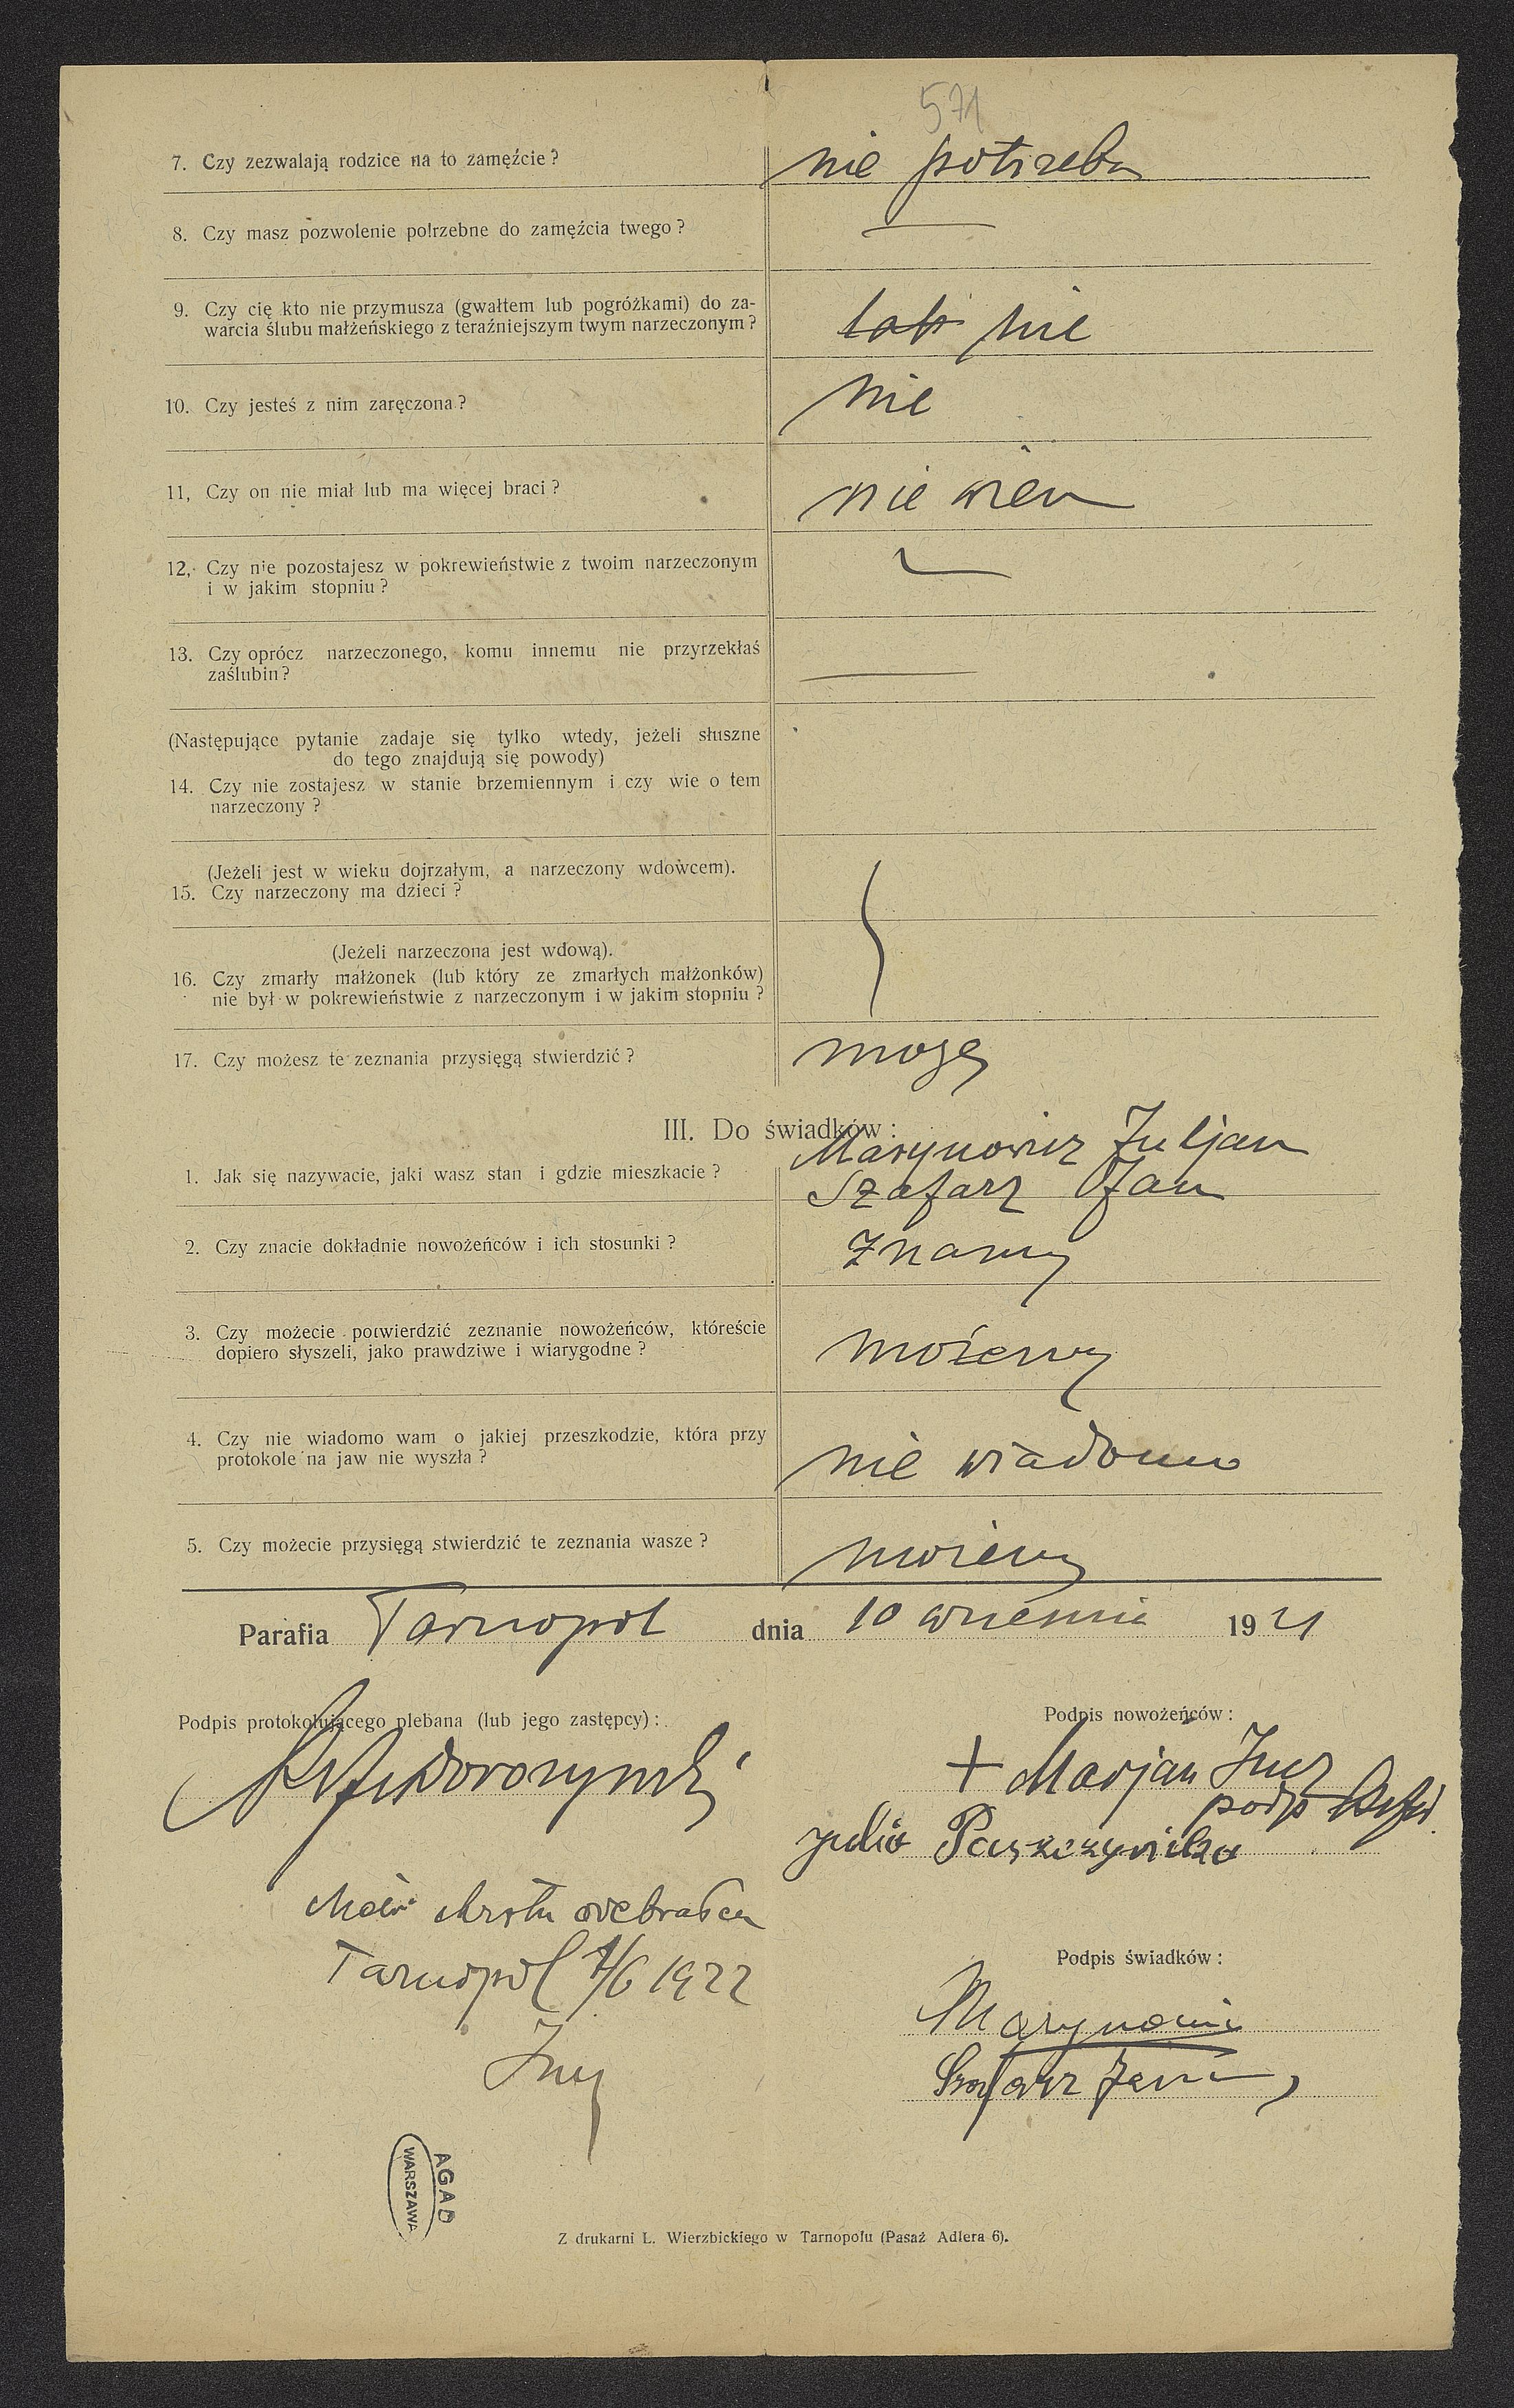 571
7. Czy zezwalają rodzice na to zamęźcie? nie potrzeba
8. Czy masz pozwolenie potrzebne do zamęźcia twego?
9. Czy cię kto nie przymusza (gwałtem lub pogróżkami) do za-
warcia ślubu małżeńskiego z teraźniejszym twym narzeczonym? tak nie
10. Czy jesteś z nim zaręczona? nie
11, Czy on nie miał lub ma więcej braci? nie wiem
12, Czy nie pozostajesz w pokrewieństwie z twoim narzeczonym
i w jakim stopniu?
13. Czy oprócz narzeczonego, komu innemu nie przyrzekłaś
zaślubin?
(Następujące pytanie zadaje się tylko wtedy, jeżeli słuszne
do tego znajdują się powody)
14. Czy nie zostajesz w stanie brzemiennym i czy wie o tem
narzeczony?
(Jeżeli jest w wieku dojrzałym, a narzeczony wdowcem).
15. Czy narzeczony ma dzieci?
(Jeżeli narzeczona jest wdową).
16. Czy zmarły małżonek (lub który ze zmarłych małżonków)
nie był w pokrewieństwie z narzeczonym i w jakim stopniu?
17. Czy możesz te zeznania przysięgą stwierdzić? mogę
III. Do świadków:
Marynowicz Juljan
1. Jak się nazywacie, jaki wasz stan i gdzie mieszkacie?
Szafarz Jan
2. Czy znacie dokładnie nowożeńców i ich stosunki? znamy
3. Czy możecie potwierdzić zeznanie nowożeńców, któreście
dopiero słyszeli, jako prawdziwe i wiarygodne? możemy
4. Czy nie wiadomo wam o jakiej przeszkodzie, która przy
protokole na jaw nie wyszła? nie wiadomo
5. Czy możecie przysięgą stwierdzić te zeznania wasze? możemy
Parafia Tarnopol dnia 10 września 1921
Podpis protokołującego plebana (lub jego zastępcy):
Podpis nowożeńców:
+ Marjan
podp
Julia
odebrałem
Tarnopol 1922
Podpis świadków:
Szafarz Jan
AGAD
WARSZAWA
Z drukarni L. Wierzbickiego w Tarnopolu (Pasaż Adlera 6).